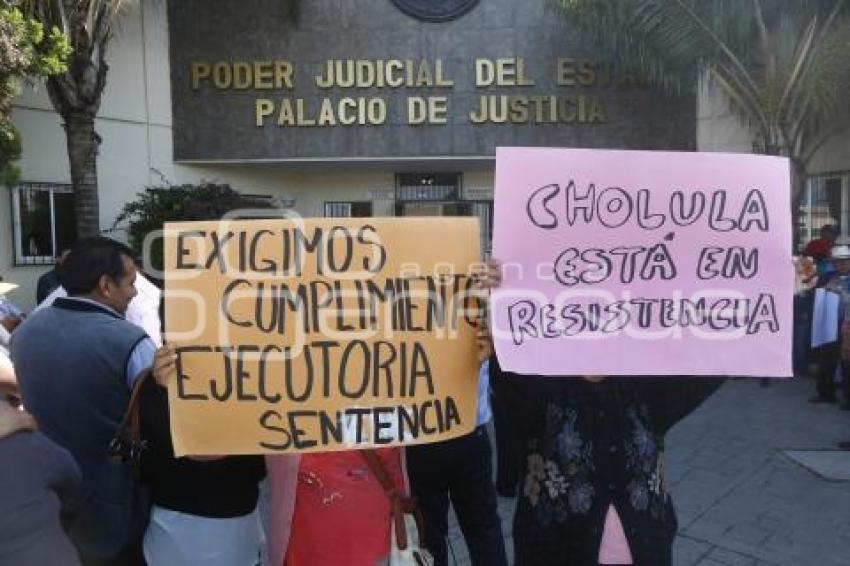 PODER JUDICIAL DEL ESTADO
PALACIO DE JUSTICIA
EXIGIMOS
CUMPLIMIENTO
EJECUTORIA
SENTENCIA
CHOLULA
ESTÁ EN
RESISTENCIA
agencia
enfocus